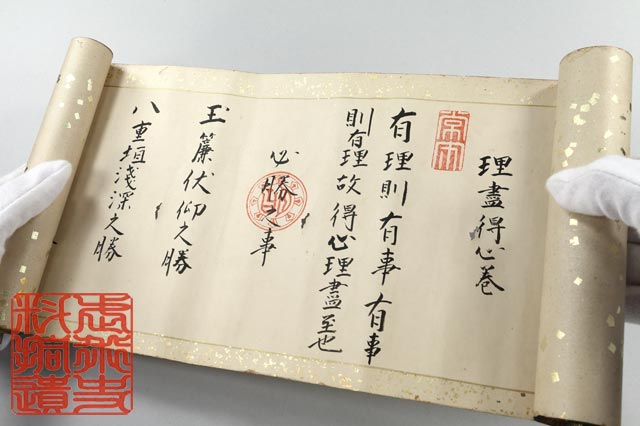 理盡得心巻
有理則有事有事
則有理故得心理盡至也
必勝之事
玉簾伏仰之勝
八重垣淺深之勝